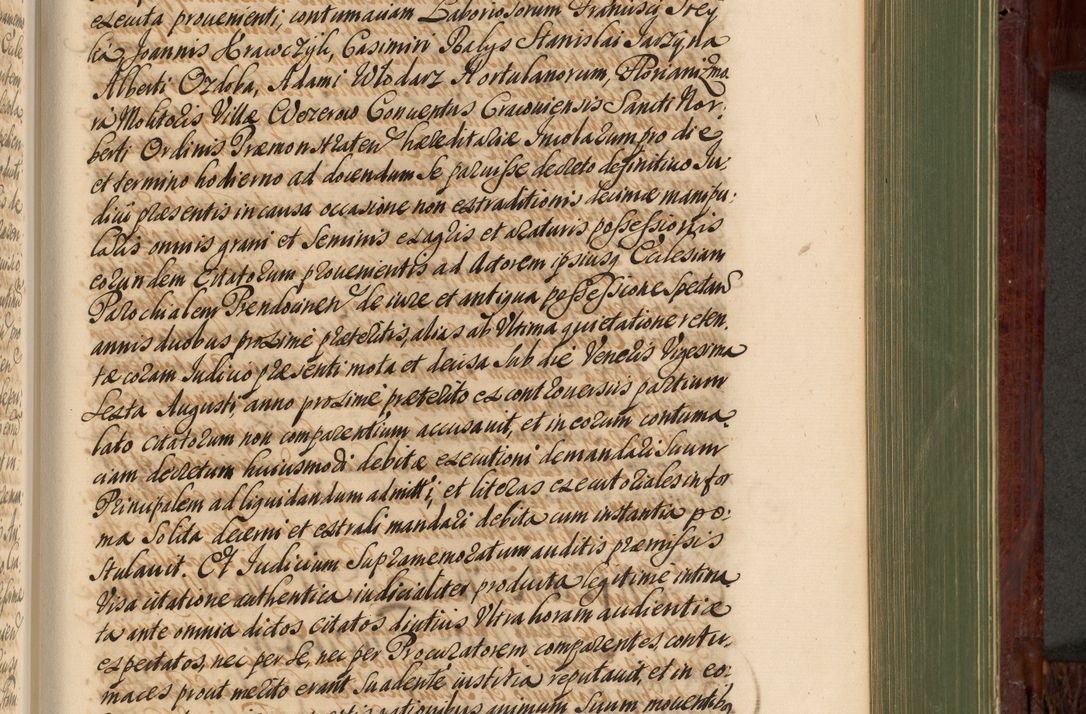 executa prouenienti, contumaciam Laboriosorum Francisci Frey
ka, Joannis Krawczyk, Casimiri Ralys Stanislai Jarzyna
Alberti Ozdoba, Adami Wlodarz Hortulanorum, Floriani
ra Molitoris Villæ Conventus Cracouiensis Sancti Nor,
berti Ordinis Præmonstraten hæreditariæ Incolarum pro die
et termino hodierno ad docendum se paruisse decreto definitiuo Ju,
dicij præsentis in causa occasione non extraditionis decimæ manipu,
laris omnis grani et seminis ex agris et araturis possessionis
eorundem Citatorum prouenientis ad Actorem ipsiusq Ecclesiam
Parochialem Prendocinen de iure et antiqua possessione spectan
annis duobus proxime præteritis, alias ab Ultima quietatione reten,
tæ coram Judicio præsenti mota et decisa sub die Veneris Vigesima
Sexta Augusti anno proxime præterito ex controuersiis partium
lato citatorum non comparentium accusauit, et in eorum contuma,
ciam decretum huiusmodi debitæ executioni demandari suum
Principalem ad liquidandum admitti, et literas executoriales in for
ma solita decerni et extradi mandari debita cum instantia po,
stulauit. Et Judicium supramemoratum auditis præmissis
Visa citatione authentica iudicialiter producta legitime intima
ta ante omnia dictos citatos diutius Ultra horam audientiæ
expectatos, nec per se, nec per Procuratorem comparentes, contu,
maces prout merito erant suadente iustitia reputauit, et in eo:
rationibus animum suum mouentib9